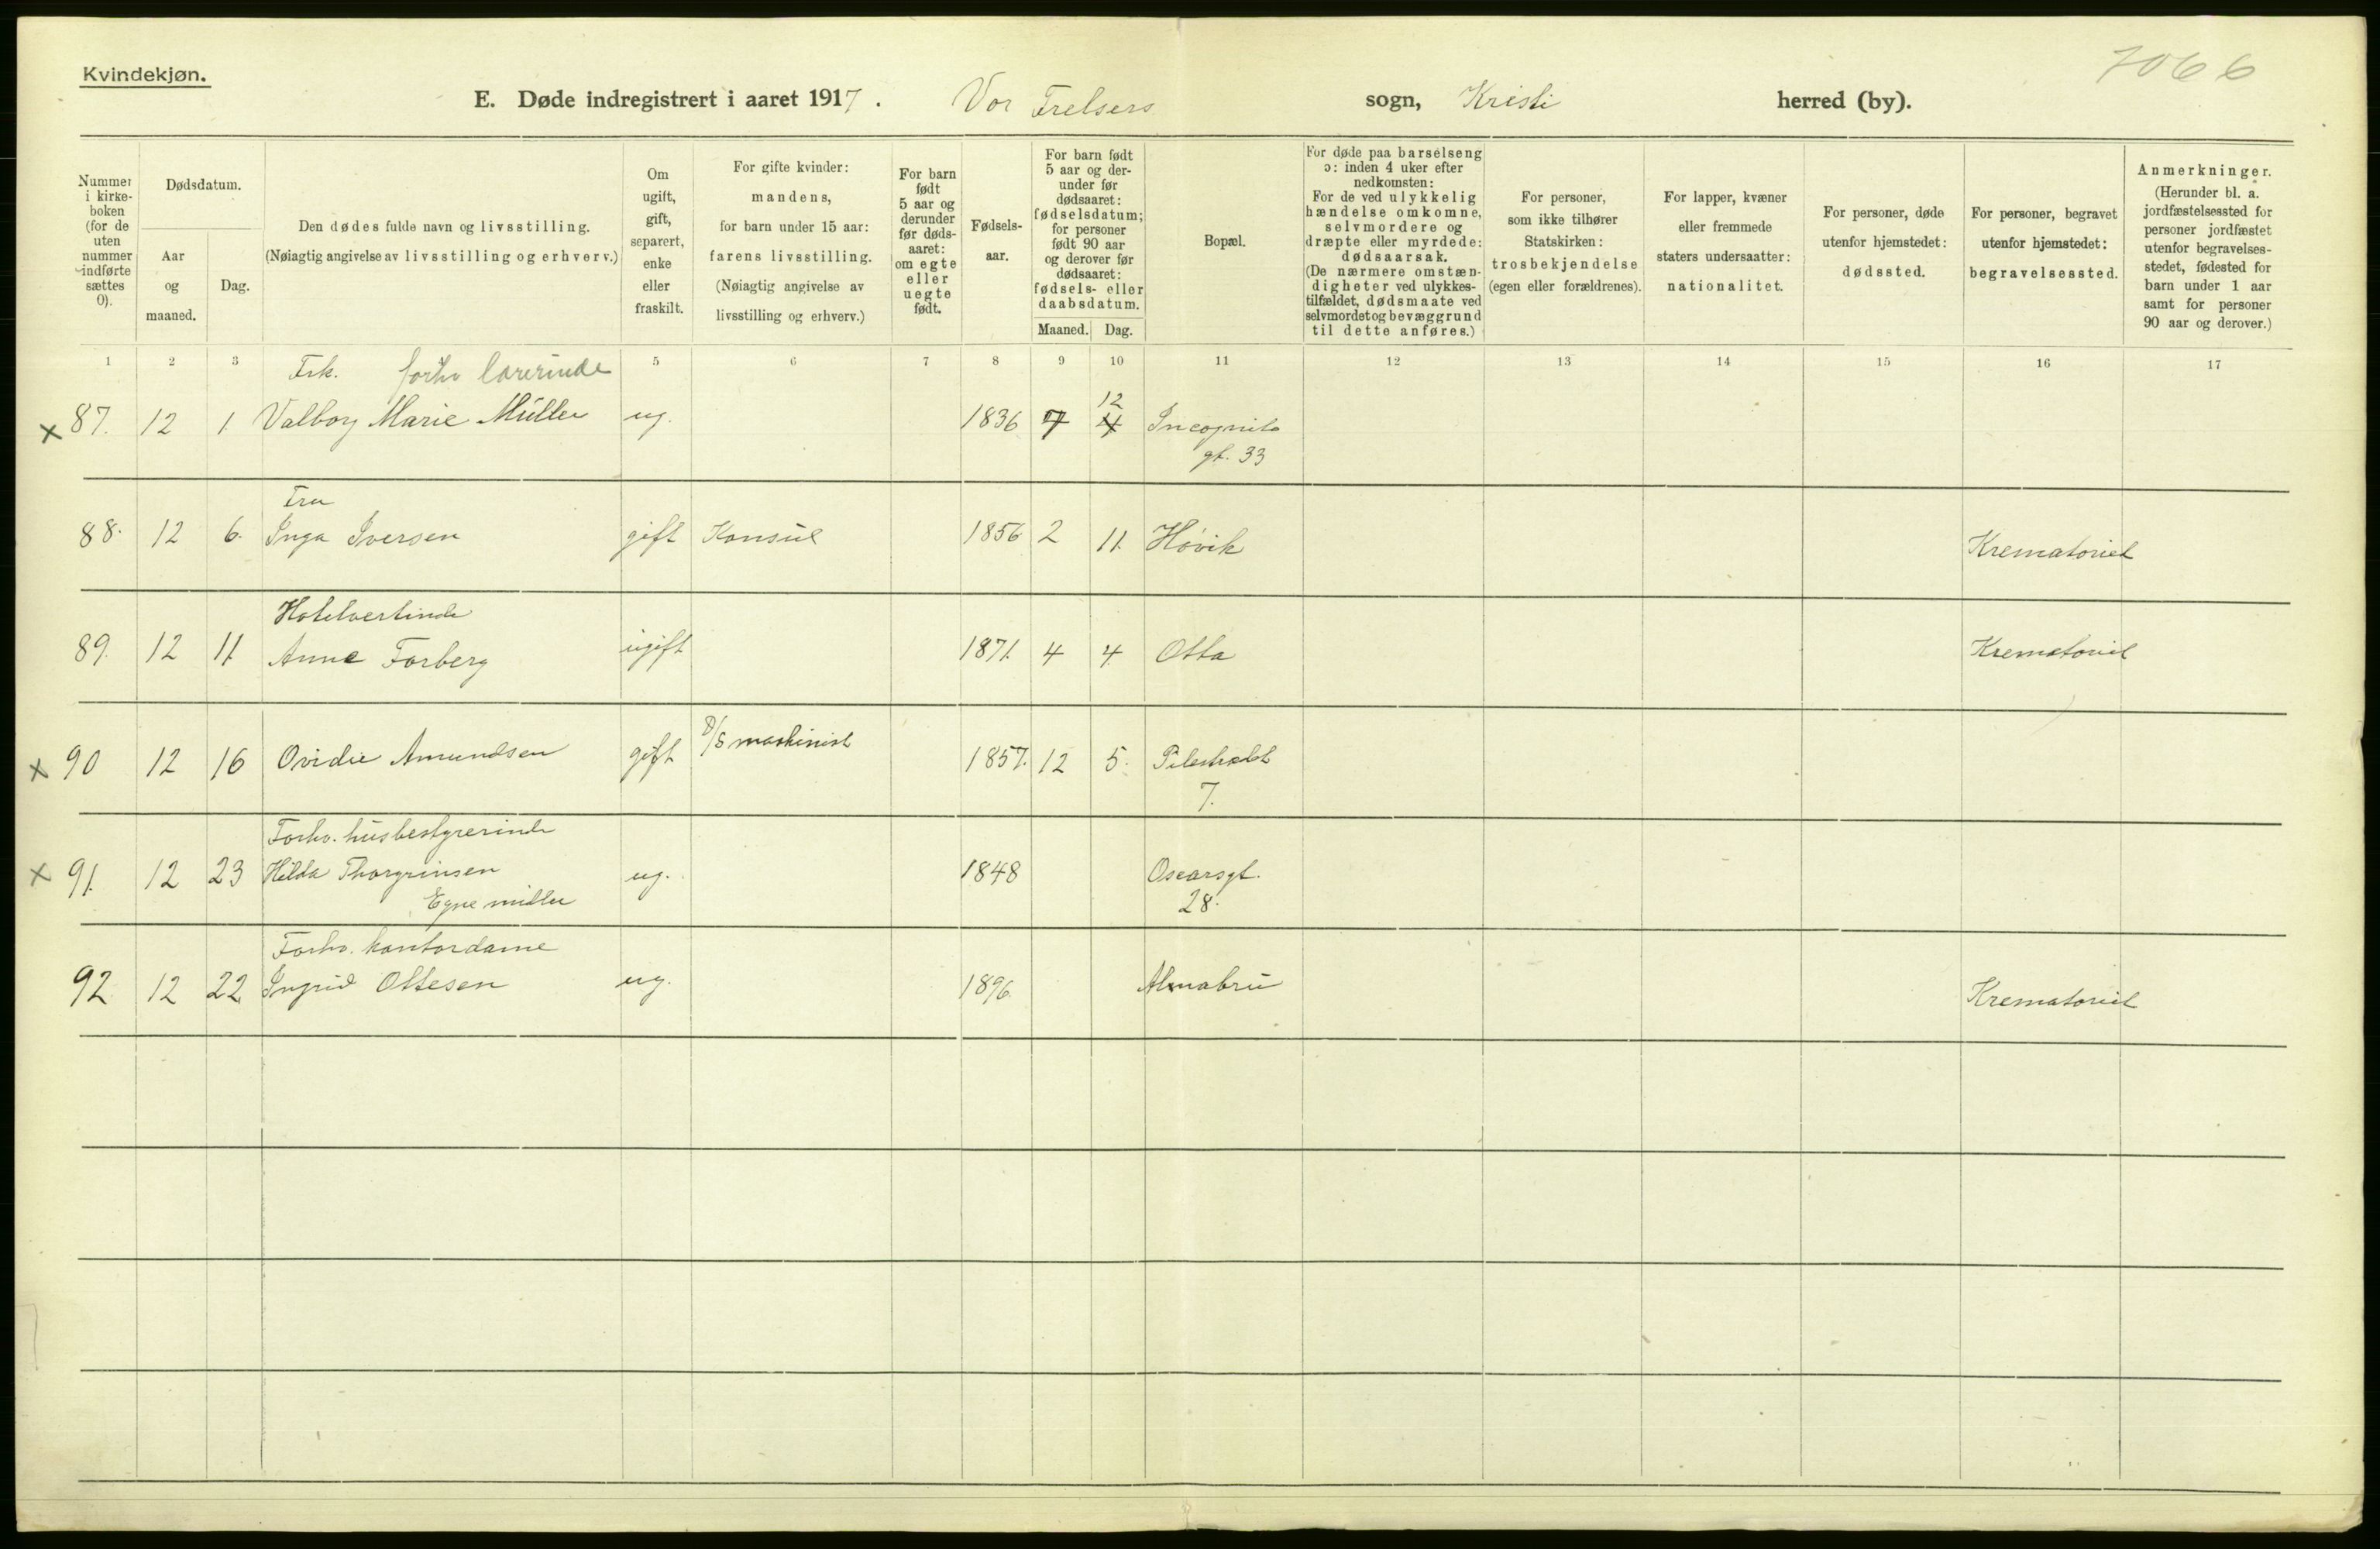 Kvindekjøn.
7066
E. Døde indregistrert i aaret 1917. Vor Frelsers sogn, Kristi herred (by).
Nummer i kirke-boken (for de uten nummer indførte sættes 0).
Dødsdatum.
Aar og maaned.
Dag.
Den dødes fulde navn og livsstilling.
(Nøiagtig angivelse av livsstilling og erhverv.)
Om ugift, gift, separert, enke eller fraskilt.
For gifte kvinder: mandens, for barn under 15 aar: farens livsstilling. (Nøiagtig angivelse av livsstilling og erhverv.)
For barn født 5 aar og derunder før døds-aaret: om egte eller uegte født.
Fødsels-aar.
For barn født 5 aar og der-under før dødsaaret: fødselsdatum; for personer født 90 aar og derover før dødsaaret: fødsels- eller daabsdatum.
Maaned. Dag.
Bopæl.
For døde paa barselseng ɔ: inden 4 uker efter nedkomsten: For de ved ulykkelig hændelse omkomne, selvmordere og dræpte eller myrdede: dødsaarsak. (De nærmere omstæn-digheter ved ulykkes-tilfældet, dødsmaate ved selvmordet og bevæggrund til dette anføres.)
For personer, som ikke tilhører Statskirken: trosbekjendelse (egen eller forældrenes).
For lapper, kvæner eller fremmede staters undersaatter: nationalitet.
For personer, døde utenfor hjemstedet: dødssted.
For personer, begravet utenfor hjemstedet: begravelsessted.
Anmerkninger. (Herunder bl. a. jordfæstelsessted for personer jordfæstet utenfor begravelses-stedet, fødested for barn under 1 aar samt for personer 90 aar og derover.)
1 2 3 5 6 7 8 9 10 11 12 13 14 15 16 17
Frk. forhv lærerinde
12
x 87. 12 1. Valborg Marie Müller ug. 1836 7 4 Incognito
gt. 33
Fru
88. 12 6. Inga Iversen gift Konsul 1856 2 11. Høvik Krematoriet
Hotelvertinde
89. 12 11 Anne Forberg ugift 1871. 4 4 Otta Krematoriet
x 90 12 16 Ovidie Amundsen gift D/S maskinist 1857. 12 5. Pilestrædet
7.
Forhv. husbestyrerinde
x 91. 12 23 Hilda Thorgrinsen ug. 1848 Oscarsgt.
Egne midler 28.
Forhv. kontordame
92. 12 22 Ingrid Ottesen ug. 1896. Alnabru Krematoriet